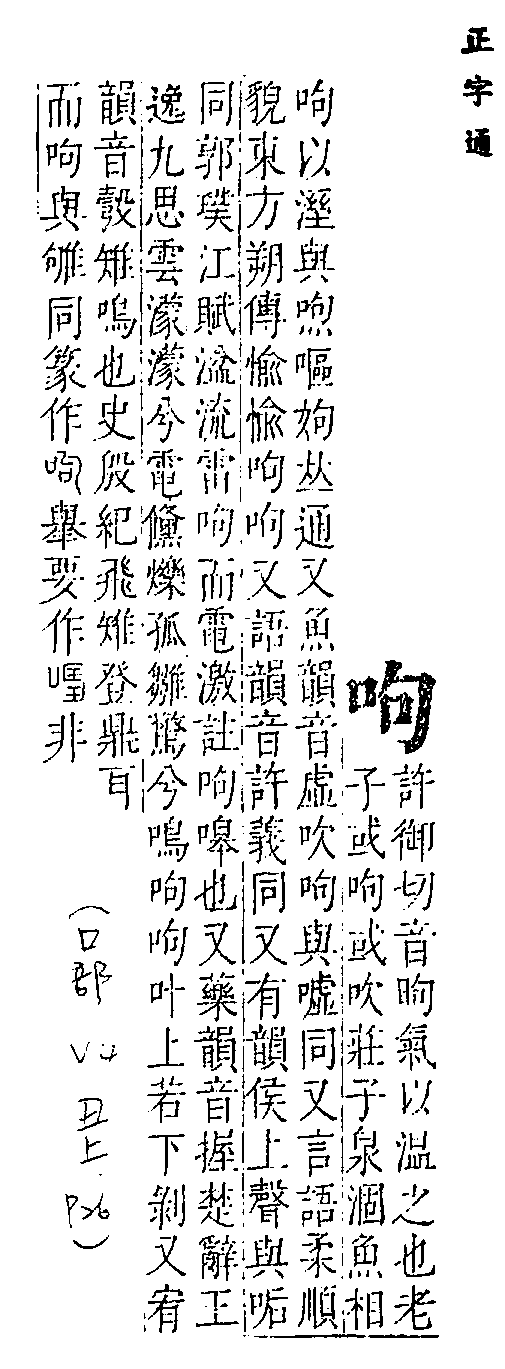 正字通
呴
許御切音昫氣以溫之也老
子或呴或吹莊子泉涸魚相
呴以溼與喣嘔姁𠀤通又魚韻音虛吹呴與噓同又言語柔順
貌東方朔傳愉愉呴呴又語韻音許義同又有韻侯上聲與㖃
同郭璞江賦溢流雷呴而電激註呴嘷也又藥韻音握楚辭王
逸九思雲濛濛兮電儵爍孤雛驚兮鳴呴呴叶上若下剝又宥
韻音彀雉鳴也史殷紀飛雉登鼎耳
而呴與雊同篆作呴舉要作非
(口部 丑上 P26)